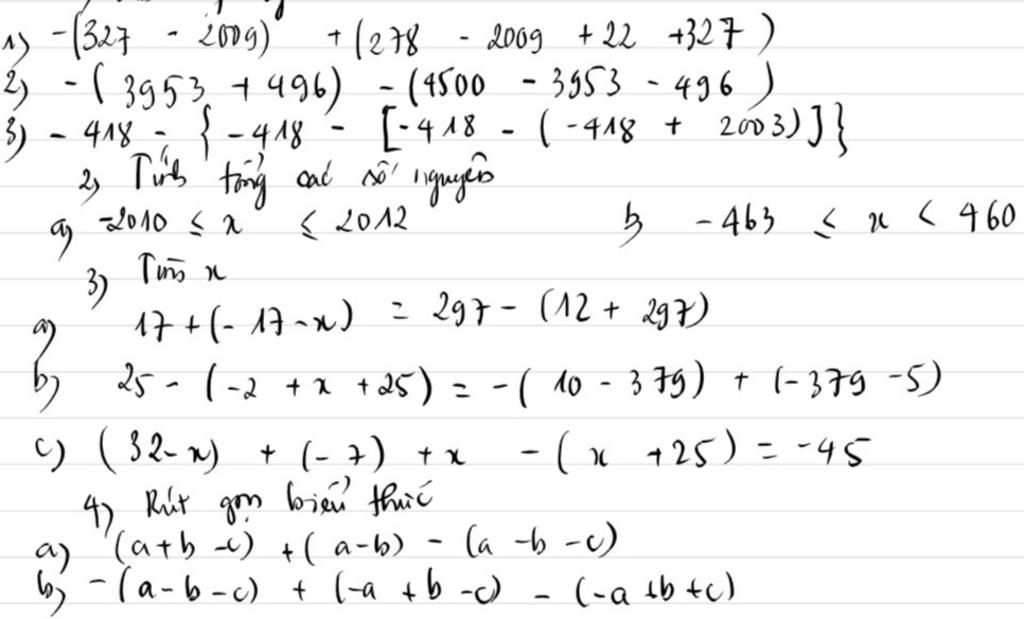 1) -(327 - 2009) + (278 - 2009 + 22 + 327)
2) - (3953 + 496) - (4500 - 3953 - 496)
3) - 418 - { - 418 - [-418 - (-418 + 2003)]}
2) Tính tổng các số nguyên
a) -2010 ≤ x ≤ 2012 b) -463 ≤ x < 460
3) Tìm x
a) 17 + (- 17 - x) = 297 - (12 + 297)
b) 25 - (-2 + x + 25) = - (10 - 379) + (-379 - 5)
c) (32 - x) + (-7) + x - (x + 25) = -45
4) Rút gọn biểu thức
a) (a + b - c) + (a - b) - (a - b - c)
b) - (a - b - c) + (-a + b - c) - (-a + b + c)